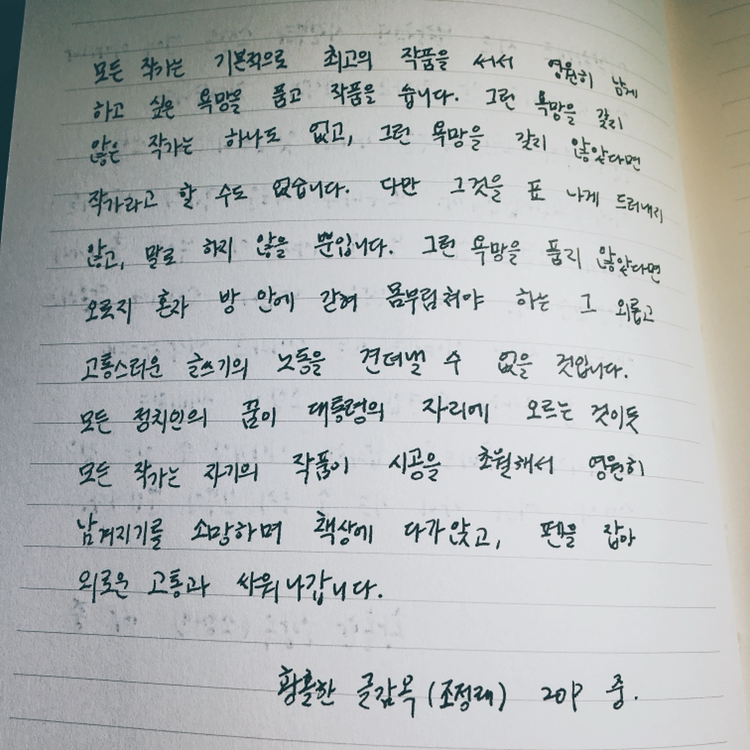 모든 작가는 기본적으로 최고의 작품을 써서 영원히 남게
하고 싶은 욕망을 품고 작품을 씁니다. 그런 욕망을 갖지
않은 작가는 하나도 없고, 그런 욕망을 갖지 않았다면
작가라고 할 수도 없습니다. 다만 그것을 표 나게 드러내지
않고, 말로 하지 않을 뿐입니다. 그런 욕망을 품지 않았다면
오로지 혼자 방 안에 갇혀 몸부림쳐야 하는 그 외롭고
고통스러운 글쓰기의 노동을 견뎌낼 수 없을 것입니다.
모든 정치인의 꿈이 대통령의 자리에 오르는 것이듯
모든 작가는 자기의 작품이 시공을 초월해서 영원히
남겨지기를 소망하며 책상에 다가앉고, 펜을 잡아
외로운 고통과 싸워나갑니다.
황홀한 글감옥 (조정래) 중.